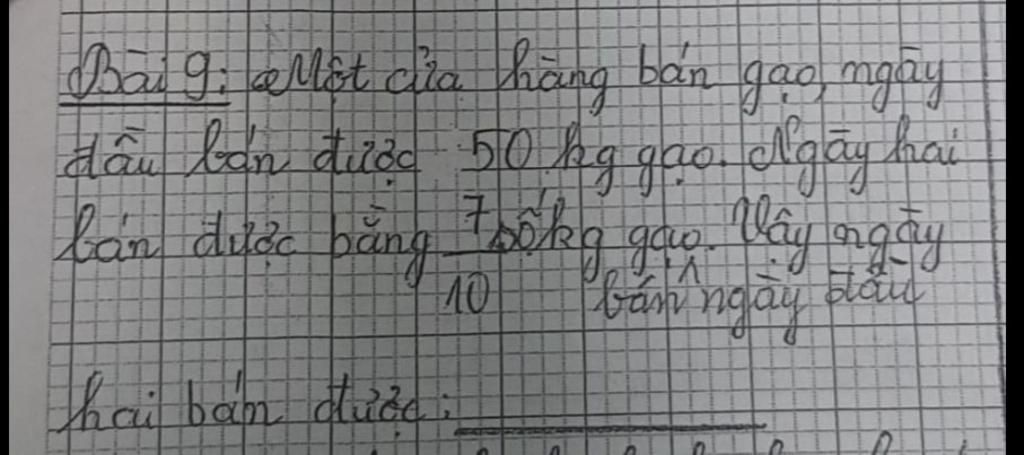 Bài 9: Một cửa hàng bán gạo, ngày
đầu bán được 50 kg gạo. Ngày hai
bán được bằng 7/10 số kg gạo. Vậy ngày
bán ngày đầu
hai bán được: